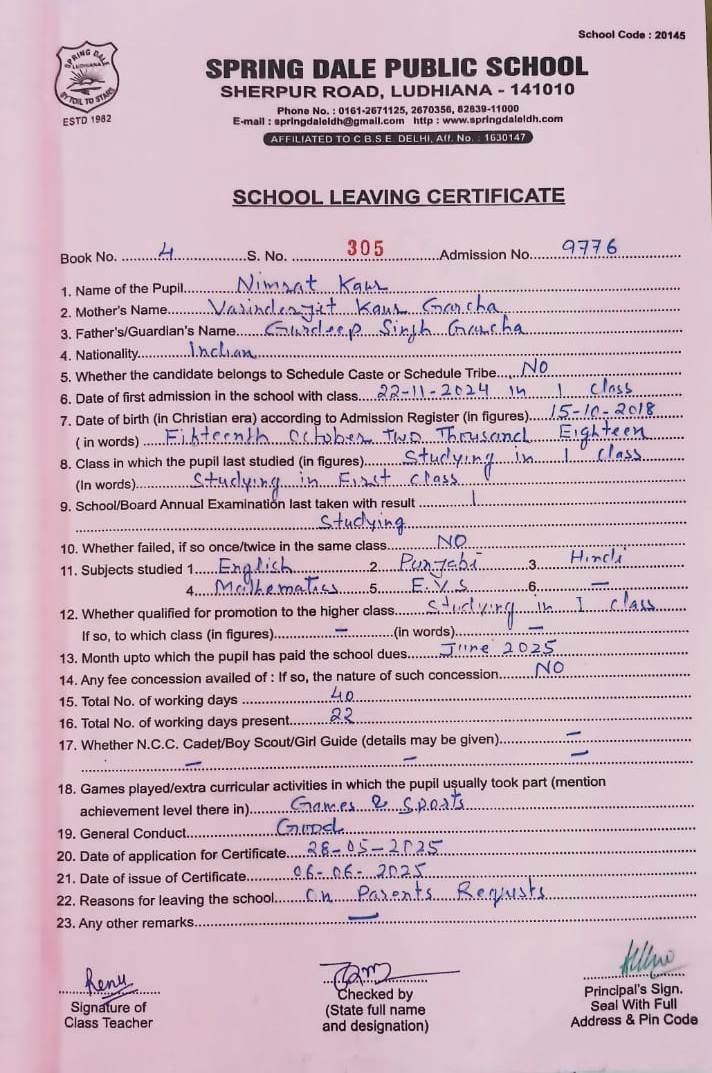 School Code : 20145
SPRING DALE
LUDHIANA
BY TOIL TO STARS
ESTD 1982
SPRING DALE PUBLIC SCHOOL
SHERPUR ROAD, LUDHIANA - 141010
Phone No. : 0161-2671125, 2670356, 82839-11000
E-mail : springdaleldh@gmail.com http : www.springdaleldh.com
AFFILIATED TO C.B.S.E. DELHI, Aff. No. : 1630147
SCHOOL LEAVING CERTIFICATE
Book No. 4 S. No. 305 Admission No. 9776
1. Name of the Pupil Nimrat Kaur
2. Mother's Name Varinderjit Kaur Garcha
3. Father's/Guardian's Name Gurdeep Singh Garcha
4. Nationality Indian
5. Whether the candidate belongs to Schedule Caste or Schedule Tribe NO
6. Date of first admission in the school with class 22-11-2024 in I class
7. Date of birth (in Christian era) according to Admission Register (in figures) 15-10-2018
( in words) Fifteenth October Two Thousand Eighteen
8. Class in which the pupil last studied (in figures) Studying in I class
(In words) Studying in First class
9. School/Board Annual Examination last taken with result
Studying
10. Whether failed, if so once/twice in the same class NO
11. Subjects studied 1. English 2. Punjabi 3. Hindi
4. Mathematics 5. E.V.S 6. —
12. Whether qualified for promotion to the higher class Studying in I class
If so, to which class (in figures) — (in words) —
13. Month upto which the pupil has paid the school dues June 2025
14. Any fee concession availed of : If so, the nature of such concession NO
15. Total No. of working days 40
16. Total No. of working days present 22
17. Whether N.C.C. Cadet/Boy Scout/Girl Guide (details may be given) —
— — —
18. Games played/extra curricular activities in which the pupil usually took part (mention
achievement level there in) Games & Sports
19. General Conduct Good
20. Date of application for Certificate 28-05-2025
21. Date of issue of Certificate 06-06-2025
22. Reasons for leaving the school on Parents Requsts
23. Any other remarks —
Renu
Signature of
Class Teacher
Checked by
(State full name
and designation)
Principal's Sign.
Seal With Full
Address & Pin Code